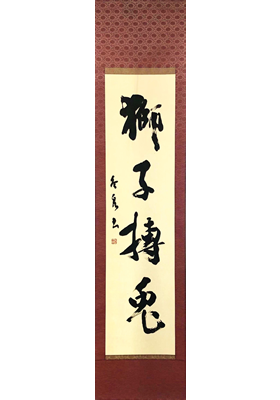 獅子搏兎